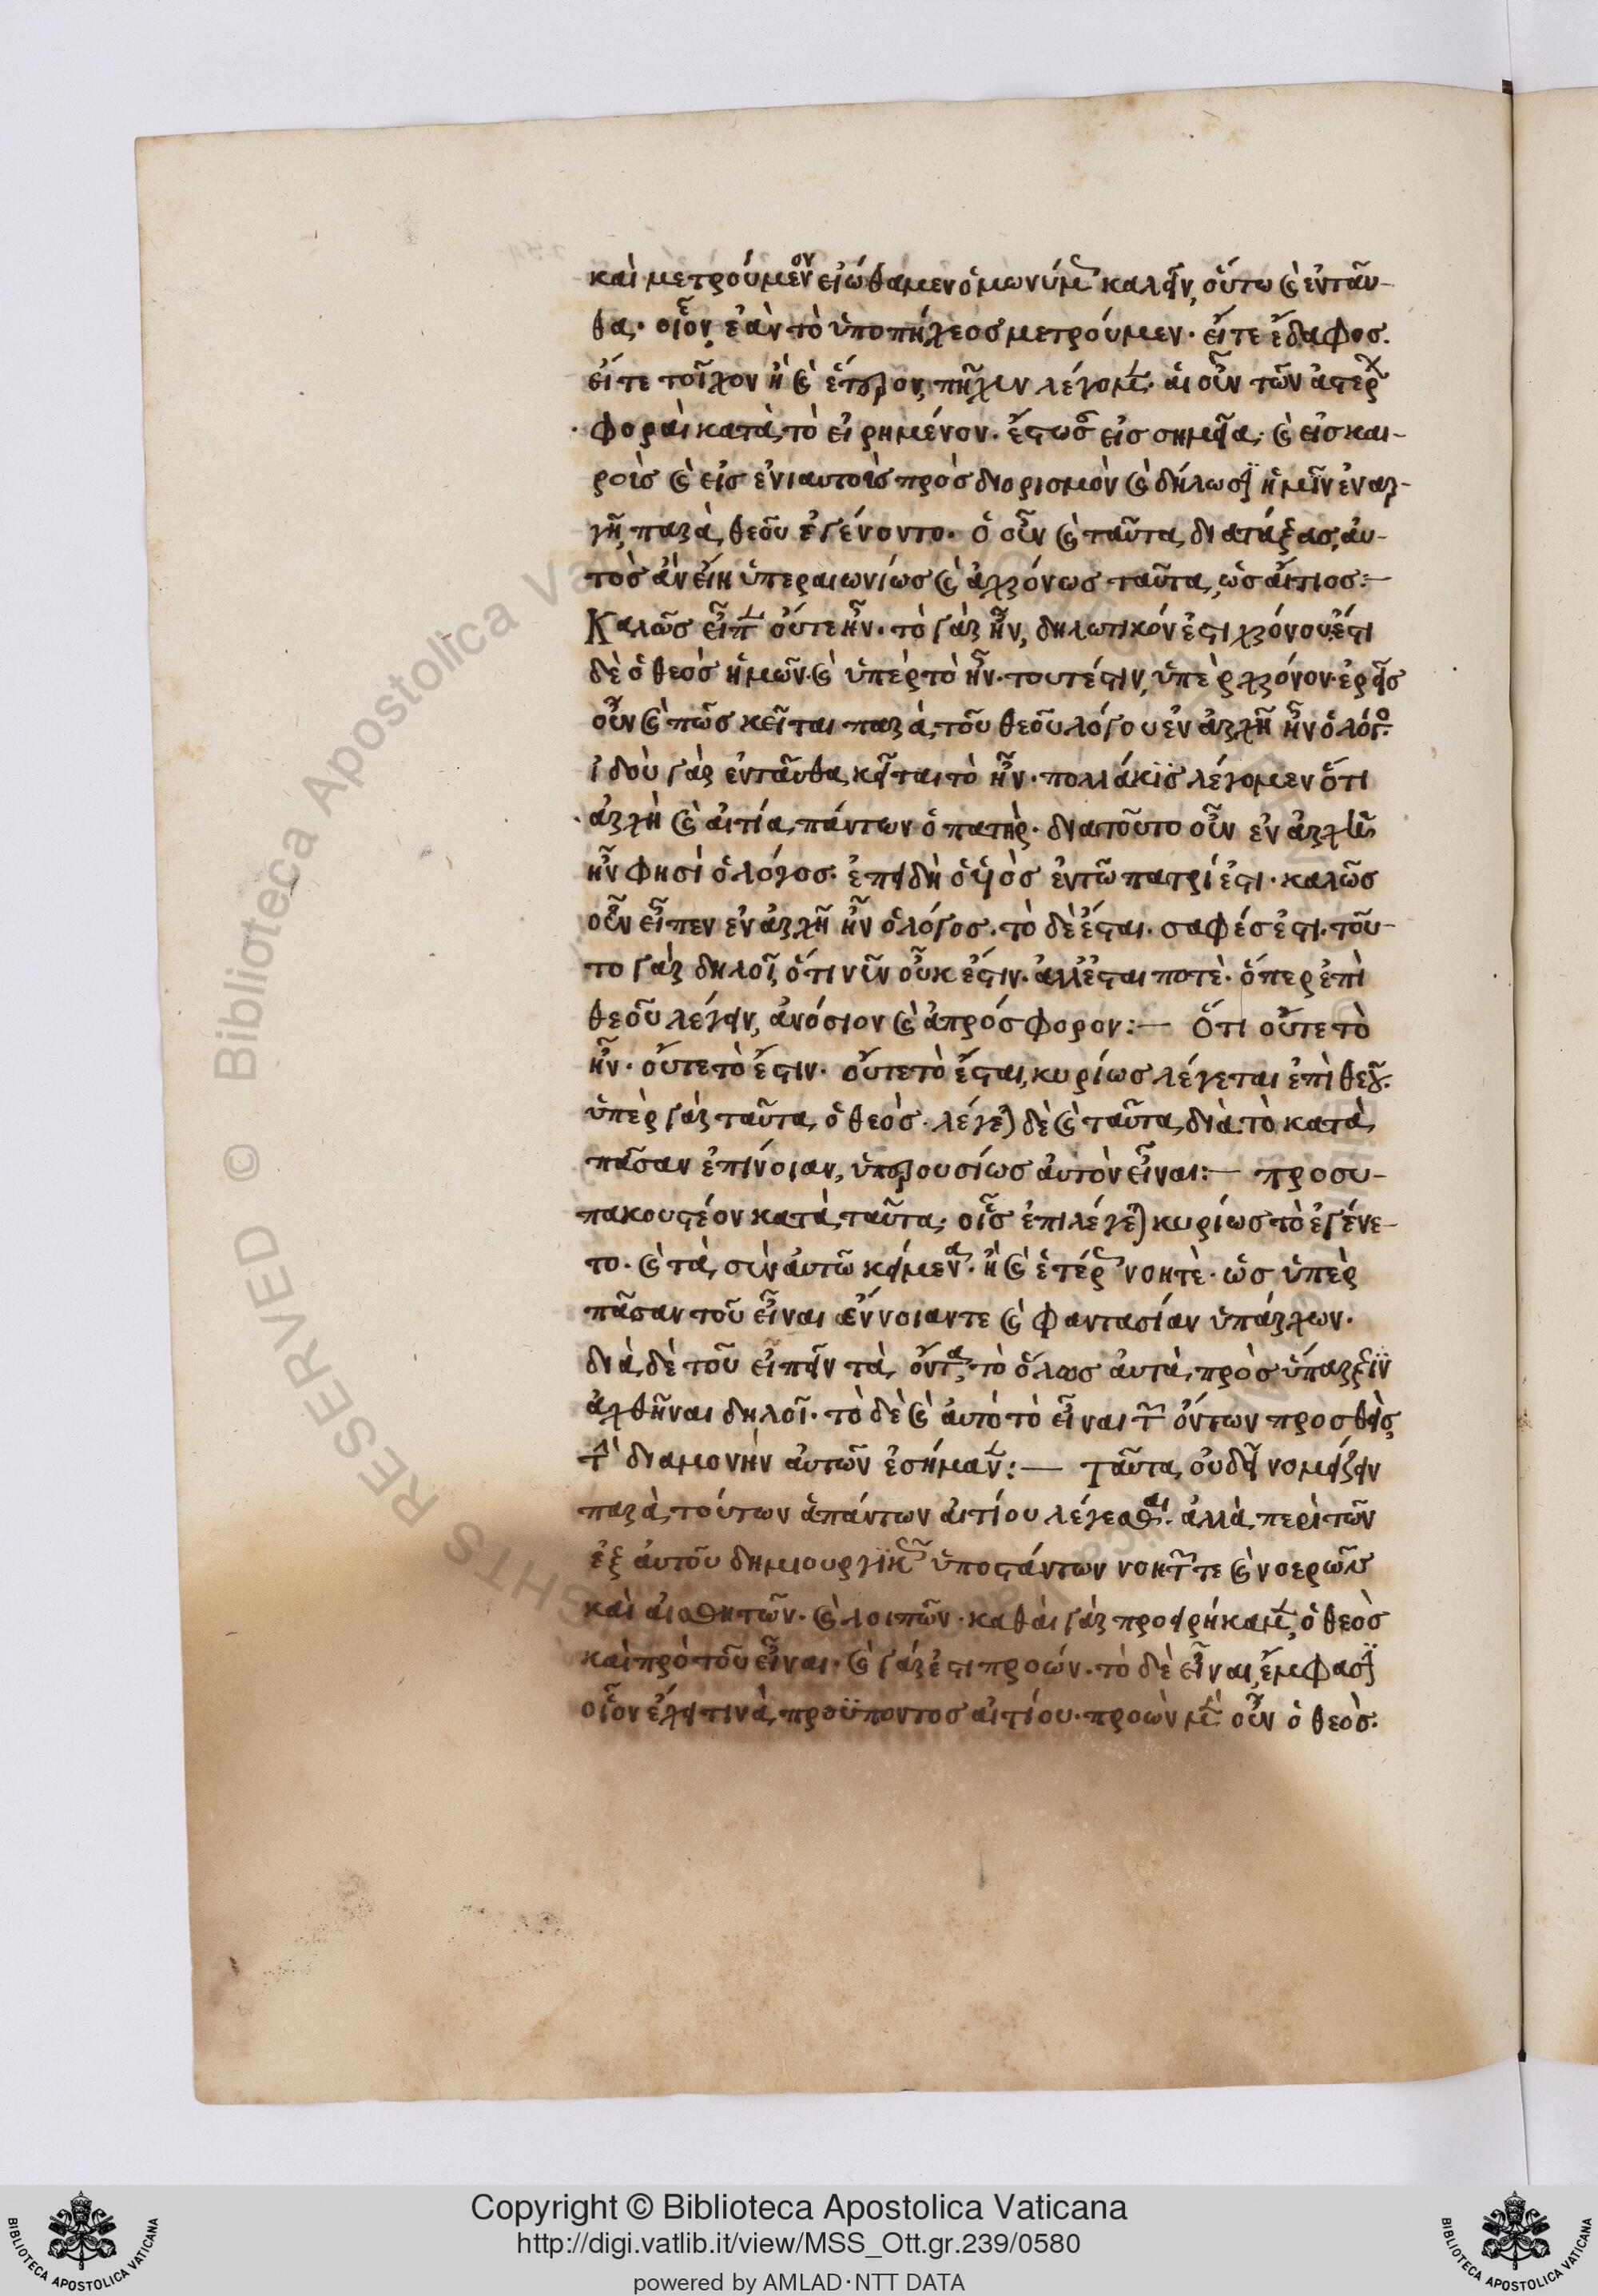 καὶ μετρούμενον εἰώθαμεν ὁμωνύμως καλεῖν, οὕτω καὶ ἐνταῦ-
θα· οἷον, ἐὰν τὸ ὑπὸ πήχεος μετρούμεν· εἴτε ἔδαφος.
εἴτε τοῖχον ἢ καὶ ἕτερον, πῆχυν λέγομεν· αἱ οὖν τῶν ἀστέρων
φοραὶ κατὰ τὸ εἰρημένον· ἔστωσαν εἰς σημεῖα· καὶ εἰς και-
ροὺς καὶ εἰς ἐνιαυτοὺς πρὸς διορισμὸν καὶ δήλωσιν ἡμῖν ἐναρ-
γῆ, παρὰ θεοῦ ἐγένοντο· ὁ οὖν καὶ ταῦτα διατάξας, αὐ-
τὸς ἂν εἴη ὑπεραιωνίως καὶ ἀχρόνως ταῦτα, ὡς αἴτιος:—
Καλῶς εἶπεν οὔτε ἦν· τὸ γὰρ ἦν, δηλωτικόν ἐστι χρόνου· ἔστι
δὲ ὁ θεὸς ἡμῶν· καὶ ὑπὲρ τὸ ἦν· τουτέστιν, ὑπὲρ χρόνον· ἐρεῖς
οὖν καὶ πῶς κεῖται παρὰ τοῦ θεοῦ λόγου ἐν ἀρχῆ ἦν ὁ λόγος·
ἰδοὺ γὰρ ἐνταῦθα κεῖται τὸ ἦν· πολλάκις λέγομεν ὅτι
ἀρχὴ καὶ αἰτία πάντων ὁ πατὴρ· διατοῦτο οὖν ἐν ἀρχῆ
ἦν φησὶ ὁ λόγος· ἐπειδὴ ὁ υἱὸς ἐν τῶ πατρί ἐστι· καλῶς
οὖν εἶπεν ἐν ἀρχῆ ἦν ὁ λόγος· τὸ δὲ ἔσται· σαφές ἐστι· τοῦ-
το γὰρ δηλοῖ, ὅτι νῦν οὐκ ἔστιν· ἀλλ' ἔσται ποτὲ· ὅπερ ἐπὶ
θεοῦ λέγειν, ἀνόσιον καὶ ἀπρόσφορον:— Ὅτι οὔτε τὸ
ἦν· οὔτε τὸ ἔστιν· οὔτε τὸ ἔσται, κυρίως λέγεται ἐπὶ θεοῦ·
ὑπὲρ γὰρ ταῦτα ὁ θεὸς· λέγεται δὲ καὶ ταῦτα διὰ τὸ κατὰ
πᾶσαν ἐπίνοιαν, ὑπερουσίως αὐτὸν εἶναι:— προσυ-
πακουστέον κατὰ ταῦτα· οἷς ἐπιλέγεται κυρίως τὸ ἐγένε-
το· καὶ τὰ σὺν αὐτῶ κείμενα· ἢ καὶ ἑτέρως νοεῖτε· ὡς ὑπὲρ
πᾶσαν τοῦ εἶναι ἔννοιαν τε καὶ φαντασίαν ὑπάρχων·
διὰ δὲ τοῦ εἰπεῖν τὰ ὄντα, τὸ ὅλως αὐτὰ πρὸς ὕπαρξιν
ἀχθῆναι δηλοῖ· τὸ δὲ καὶ αὐτὸ τὸ εἶναι τῶν ὄντων προσθεὶς,
τὴν διαμονὴν αὐτῶν ἐσήμανεν:— Ταῦτα οὐ δεῖ νομίζειν
παρὰ τούτων ἁπάντων αἰτίου λέγεσθαι· ἀλλὰ περὶ τῶν
ἐξ αὐτοῦ δημιουργικῶς ὑποστάντων νοητῶν τε καὶ νοερῶν
καὶ αἰσθητῶν· καὶ λοιπῶν· καθὰ γὰρ προειρήκαμεν, ὁ θεὸς
καὶ πρὸ τοῦ εἶναι· καὶ γάρ ἐστι προών· τὸ δὲ εἶναι, ἔμφασιν
οἷον ἔχει τινὰ προϋπόντος αἰτίου· προὼν μὲν οὖν ὁ θεὸς·
Copyright © Biblioteca Apostolica Vaticana
http://digi.vatlib.it/view/MSS_Ott.gr.239/0580
powered by AMLAD·NTT DATA